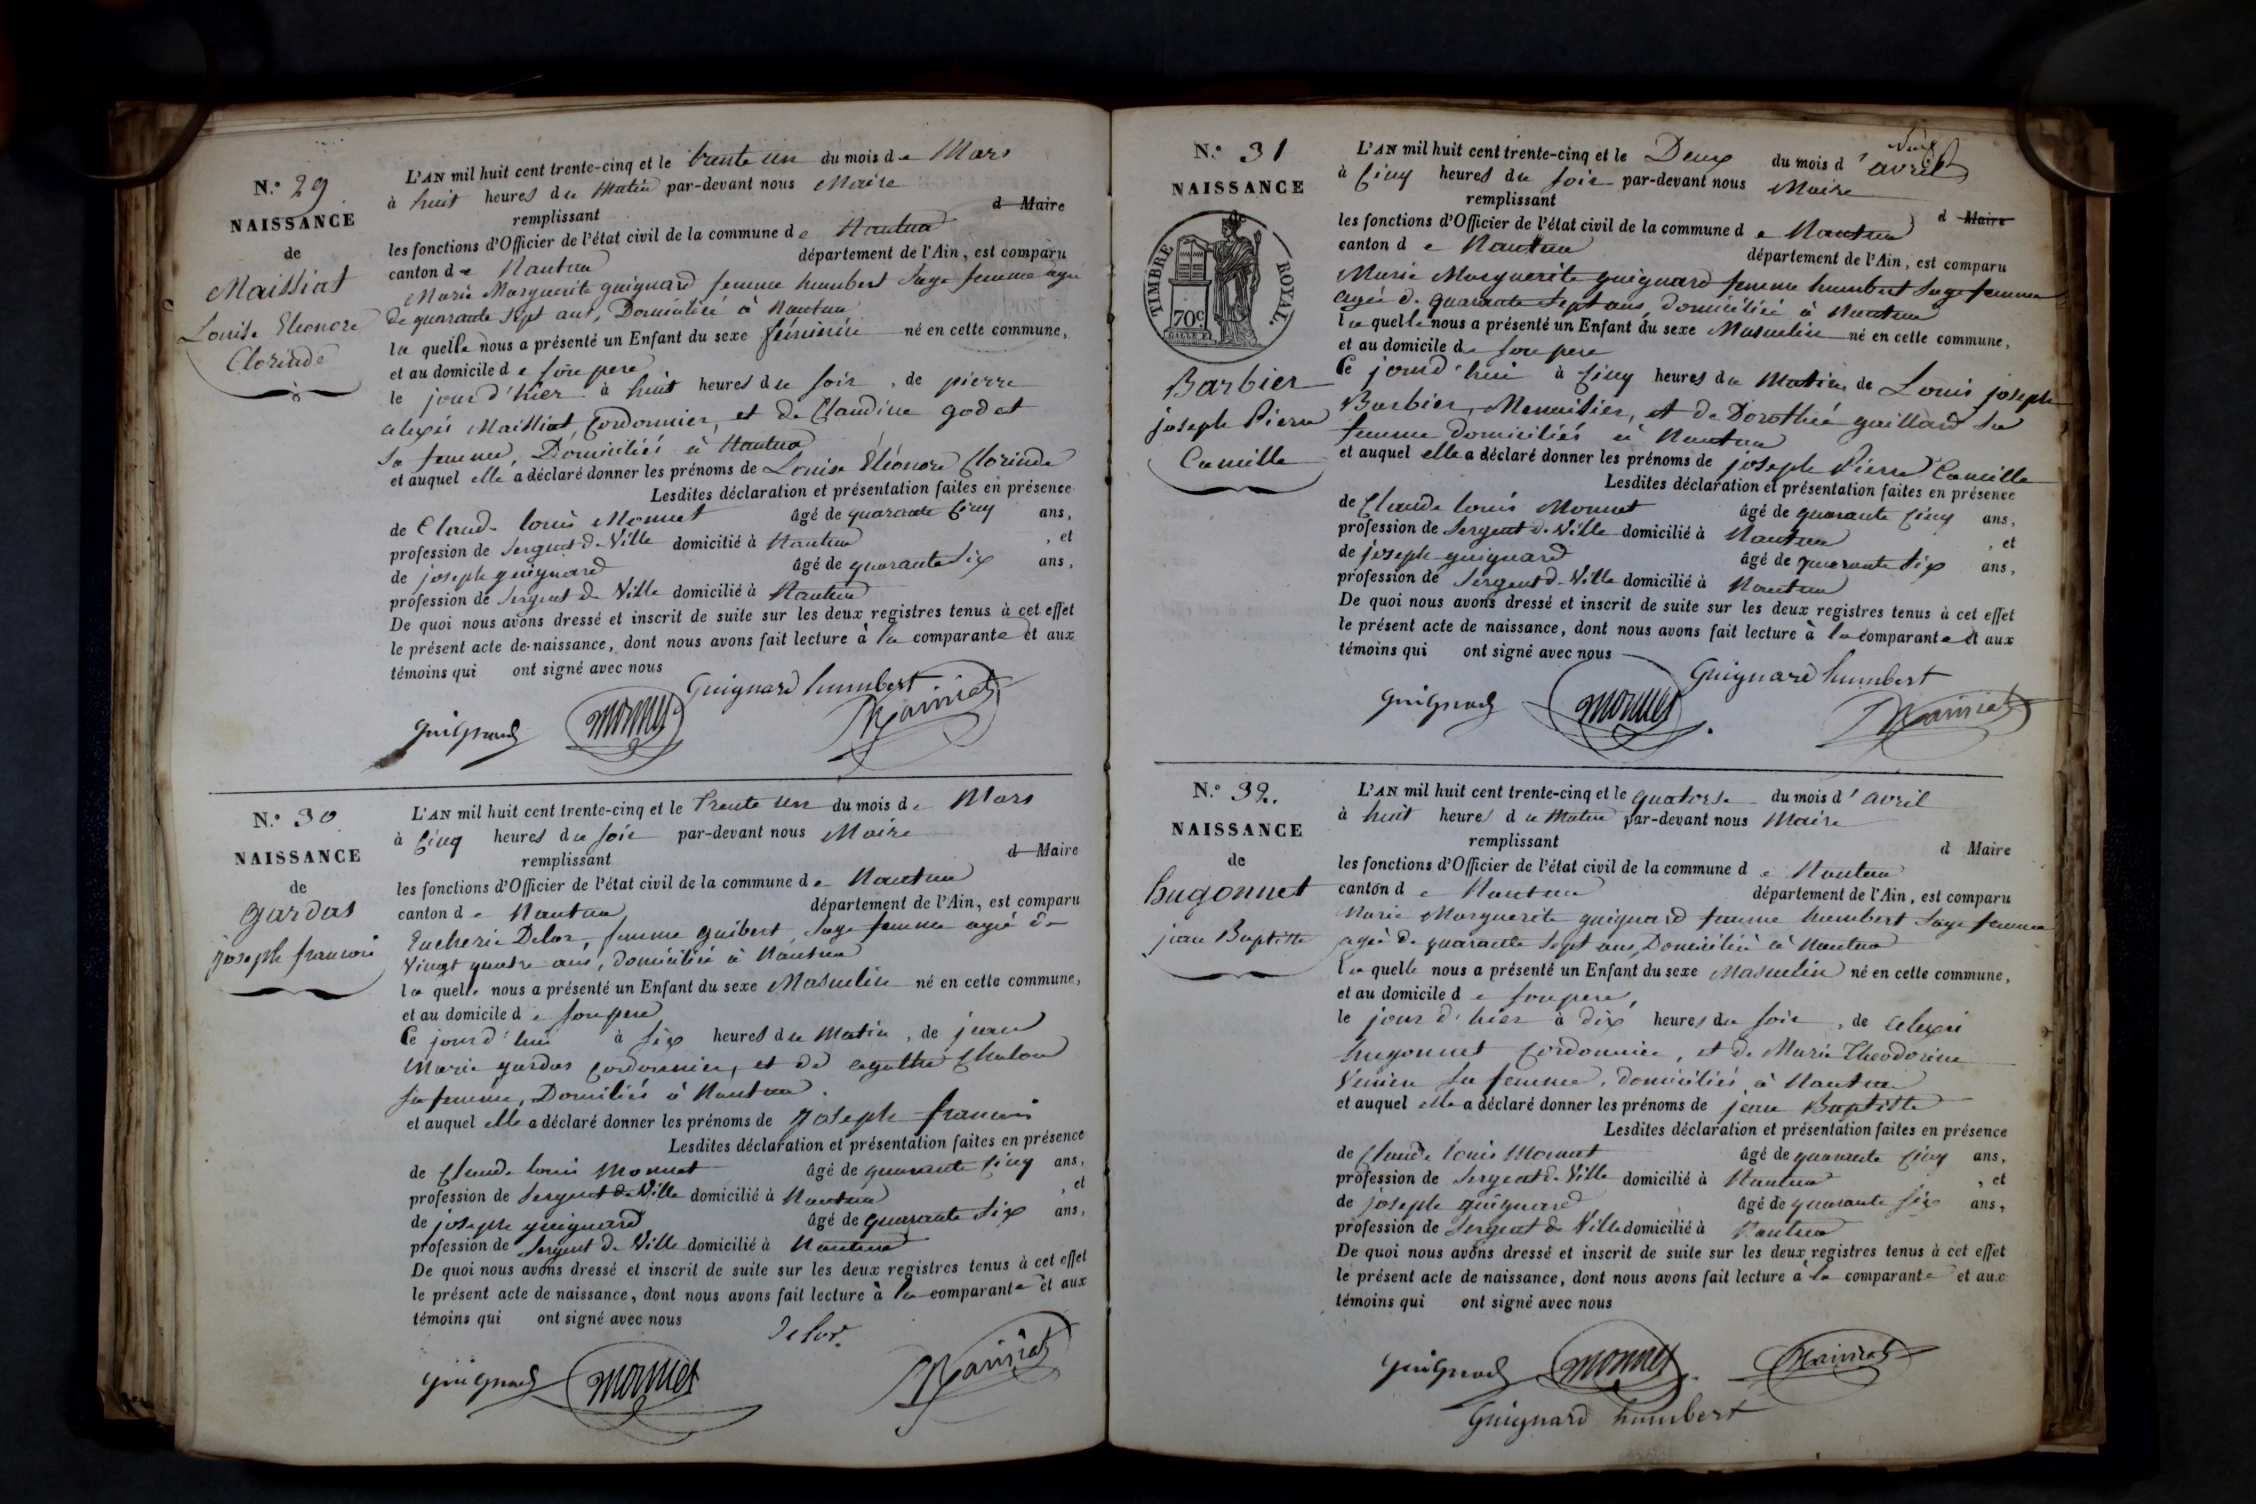 N.° 29
NAISSANCE
de
Maissiat
Louise Eléonore
Clorinde
L'AN mil huit cent trente-cinq et le trente un du mois de Mars
à huit heures du Matin par-devant nous Maire
remplissant d Maire
les fonctions d'Officier de l'état civil de la commune de Nantua
canton de Nantua département de l'Ain, est comparu
Marie Marguerite guignard femme humbert Sage femme agée
de quarante sept ans, Domiciliée à Nantua
la quelle nous a présenté un Enfant du sexe féminin né en cette commune,
et au domicile de son pere
le jour d'hier à huit heures du soir, de pierre
alexis Maissiat, Cordonnier, et de Claudine godet
sa femme, Domiciliés à Nantua
et auquel elle a déclaré donner les prénoms de Louise Eléonore Clorinde
Lesdites déclaration et présentation faites en présence
de Claude louis Monnet âgé de quarante cinq ans,
profession de Sergent de Ville domicilié à Nantua, et
de joseph guignard âgé de quarante Six ans,
profession de Sergent de Ville domicilié à Nantua
De quoi nous avons dressé et inscrit de suite sur les deux registres tenus à cet effet
le présent acte de naissance, dont nous avons fait lecture à la comparante et aux
témoins qui ont signé avec nous
Guignard humbert
Guignard Monnet
N.° 30
NAISSANCE
de
gardas
joseph francois
L'AN mil huit cent trente-cinq et le Trente un du mois de Mars
à Cinq heures du soir par-devant nous Maire
remplissant d Maire
les fonctions d'Officier de l'état civil de la commune de Nantua
canton de Nantua département de l'Ain, est comparu
Eucherie Delor, femme guibert, Sage femme agée de
Vingt quatre ans, domiciliée à Nantua
la quelle nous a présenté un Enfant du sexe Masculin né en cette commune,
et au domicile de son pere
Ce jourd'hui à six heures du Matin, de jean
Marie gardas cordonnier, et de agathe Chalon
sa femme, Domiciliés à Nantua.
et auquel elle a déclaré donner les prénoms de joseph francois
Lesdites déclaration et présentation faites en présence
de Claude louis Monnet âgé de quarante Cinq ans,
profession de Sergent de Ville domicilié à Nantua, et
de joseph guignard âgé de quarante Six ans,
profession de Sergent de Ville domicilié à Nantua
De quoi nous avons dressé et inscrit de suite sur les deux registres tenus à cet effet
le présent acte de naissance, dont nous avons fait lecture à la comparante et aux
témoins qui ont signé avec nous
Delor.
Guignard Monnet
N.° 31
NAISSANCE
TIMBRE ROYAL.
70c
Barbier
joseph Pierre
Camille
L'AN mil huit cent trente-cinq et le Deux du mois d'avril
à Cinq heures du soir par-devant nous Maire
remplissant d Maire
les fonctions d'Officier de l'état civil de la commune de Nantua
canton de Nantua département de l'Ain, est comparu
Marie Marguerite guignard femme humbert Sage femme
agée de quarante sept ans, domiciliée à Nantua
la quelle nous a présenté un Enfant du sexe Masculin né en cette commune,
et au domicile de son pere
Ce jourd'hui à Cinq heures du Matin, de Louis joseph
Barbier, Menuisier, et de Dorothée gaillard sa
femme domiciliés à Nantua
et auquel elle a déclaré donner les prénoms de joseph Pierre Camille
Lesdites déclaration et présentation faites en présence
de Claude louis Monnet âgé de quarante Cinq ans,
profession de Sergent de Ville domicilié à Nantua, et
de joseph guignard âgé de quarante Six ans,
profession de Sergent de Ville domicilié à Nantua
De quoi nous avons dressé et inscrit de suite sur les deux registres tenus à cet effet
le présent acte de naissance, dont nous avons fait lecture à la comparante et aux
témoins qui ont signé avec nous
Guignard humbert
Guignard Monnet
N.° 32.
NAISSANCE
de
hugonnet
jean Baptiste
L'AN mil huit cent trente-cinq et le quatorse du mois d'avril
à huit heures du Matin par-devant nous Maire
remplissant d Maire
les fonctions d'Officier de l'état civil de la commune de Nantua
canton de Nantua département de l'Ain, est comparu
Marie Marguerite guignard femme humbert Sage femme
agée de quarante sept ans, Domiciliée à Nantua
la quelle nous a présenté un Enfant du sexe Masculin né en cette commune,
et au domicile de son pere,
le jour d'hier à dix heures du soir, de alexis
hugonnet Cordonnier, et de Marie Theodorine
sa femme, domiciliés à Nantua
et auquel elle a déclaré donner les prénoms de jean Baptiste
Lesdites déclaration et présentation faites en présence
de Claude louis Monnet âgé de quarante Cinq ans,
profession de Sergent de Ville domicilié à Nantua, et
de joseph guignard âgé de quarante six ans,
profession de Sergent de Ville domicilié à Nantua
De quoi nous avons dressé et inscrit de suite sur les deux registres tenus à cet effet
le présent acte de naissance, dont nous avons fait lecture à la comparante et aux
témoins qui ont signé avec nous
Guignard Monnet
Guignard humbert